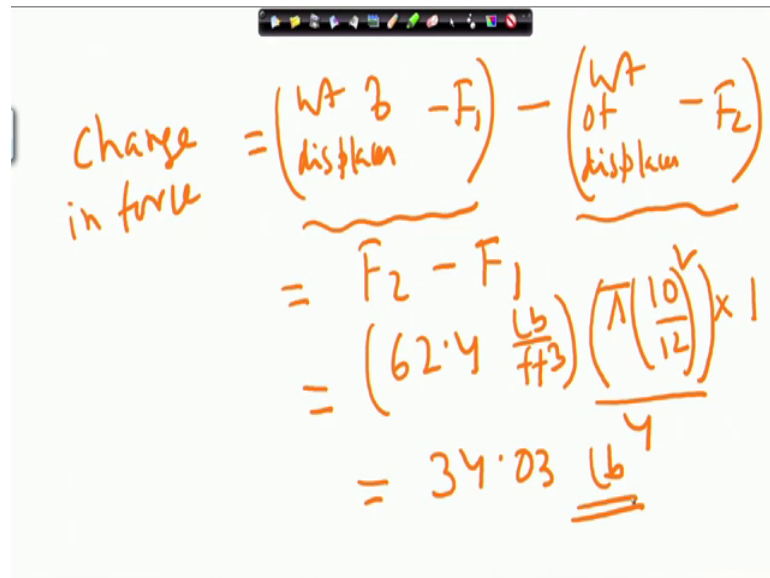 Change in force = (wt of displacer - F₁) - (wt of displacer - F₂)
= F₂ - F₁
= (62.4 lb/ft³) (π(10/12)²)/4 × 1
= 34.03 lb